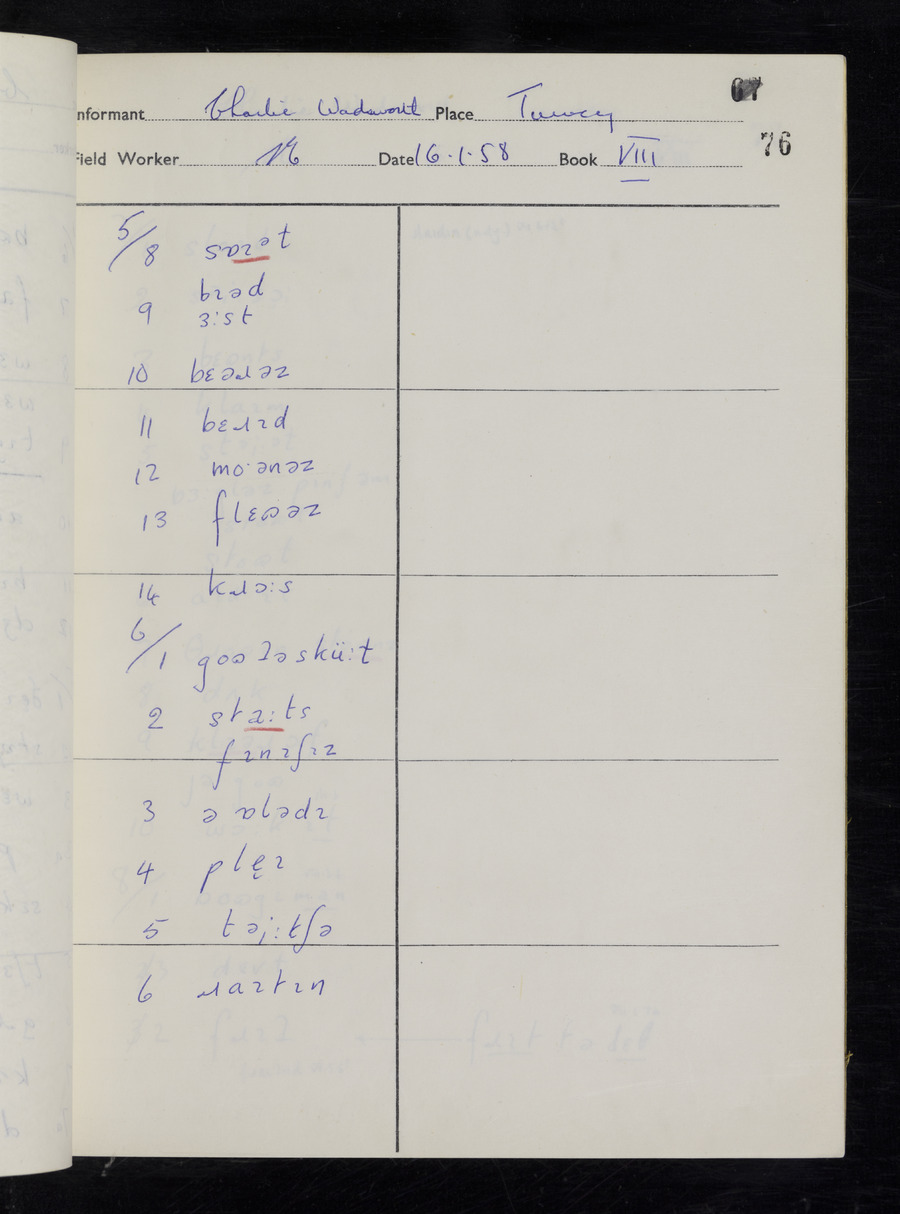 67
Informant Charlie Wadsworth Place Turvey
76
Field Worker N Date 16.1.58 Book VIII
5/8 saɪət
9 bɹəd
ɜ:st
10 bɛəɹəz
11 bɛɹɪd
12 mo·ənəz
13 flɛɷəz
14 kɹɔ:s
6/1 goɷʔəskü:t
2 sta:ts
fɪnɪʃɪz
3 ə ɒlədɪ
4 plɛ̨ɪ
5 təi:tʃə
6 ɹaɪtɪn